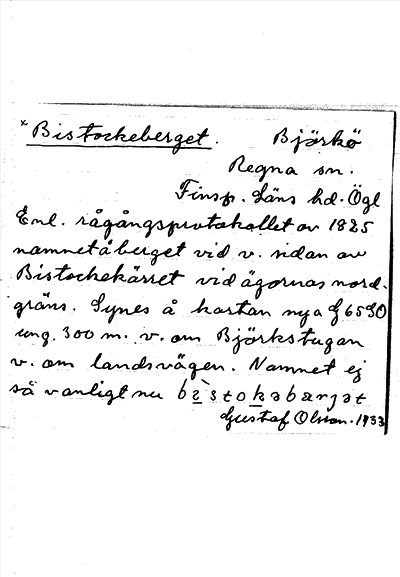 × Bistockeberget. Björkö
Regna sn.
Finsp. Läns hd. Ögl
Enl. rågångsprotokollet av 1825
namnet å berget vid v. sidan av
Bistockekärret vid ägornas nord-
gräns. Synes å kartan nya
ung. 300 m. v. om Björkstugan
v. om landsvägen. Namnet ej
så vanligt nu bìstokəbærjət
Gustaf Olsson. 1933